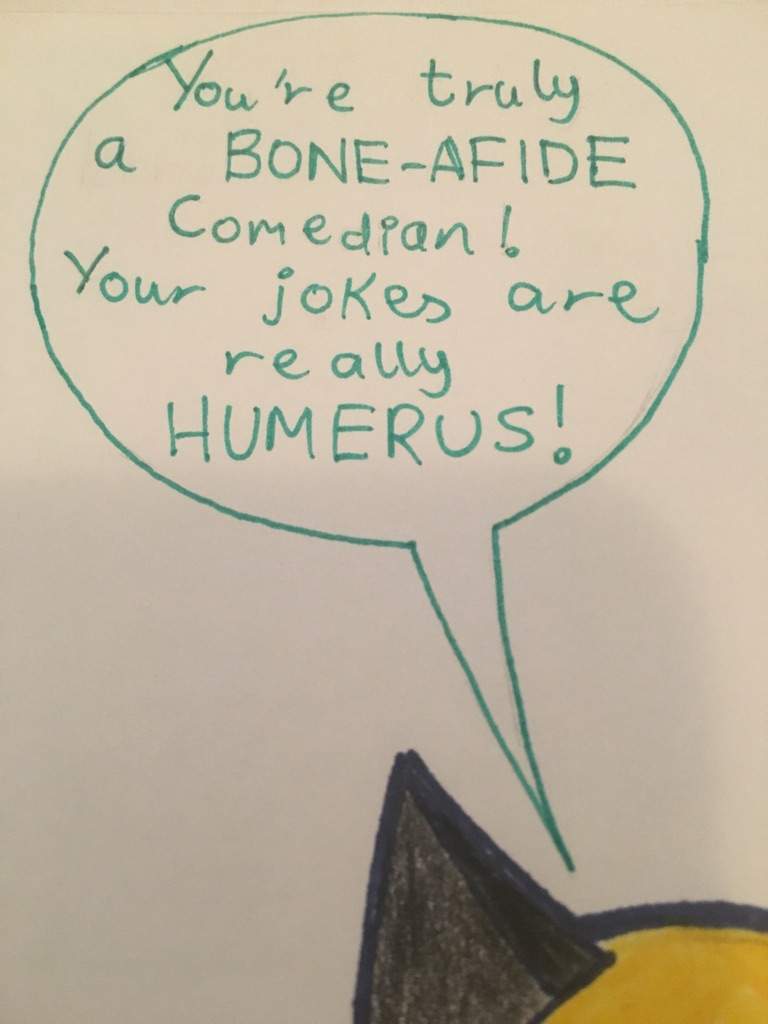 You're truly
a BONE-AFIDE
Comedian!
Your jokes are
really
HUMERUS!